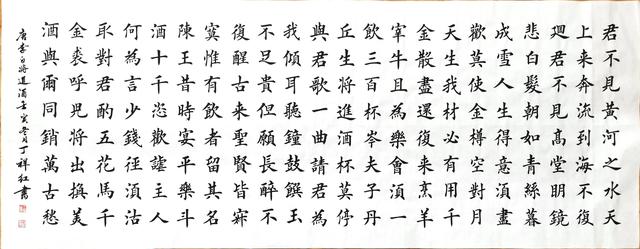 君不見黃河之水天
上来奔流到海不復
迴君不見高堂明鏡
悲白髮朝如青絲暮
成雪人生得意須盡
歡莫使金樽空對月
天生我材必有用千
金散盡還復来烹羊
宰牛且為樂會須一
飲三百杯岑夫子丹
丘生將進酒杯莫停
與君歌一曲請君為
我傾耳聽鐘鼓饌玉
不足貴但願長醉不
復醒古来聖賢皆寂
寞惟有飲者留其名
陳王昔時宴平樂斗
酒十千恣歡謔主人
何為言少錢徑須沽
取對君酌五花馬千
金裘呼兒將出換美
酒與爾同銷萬古愁
唐李白將進酒壬寅冬月丁祥红書